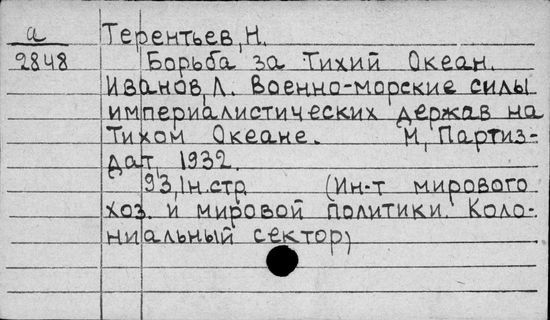 а Терентьев, Н.
2848 Борьба за Тихий Океан.
Иванов, Л. Военно-морские силы
империалистических держав на
Тихом Океане. М, Партиз-
дат, 1932.
93, 1н. стр (Ин-т мирового
хоз. и мировой политики. Коло-
ниальный сектор)